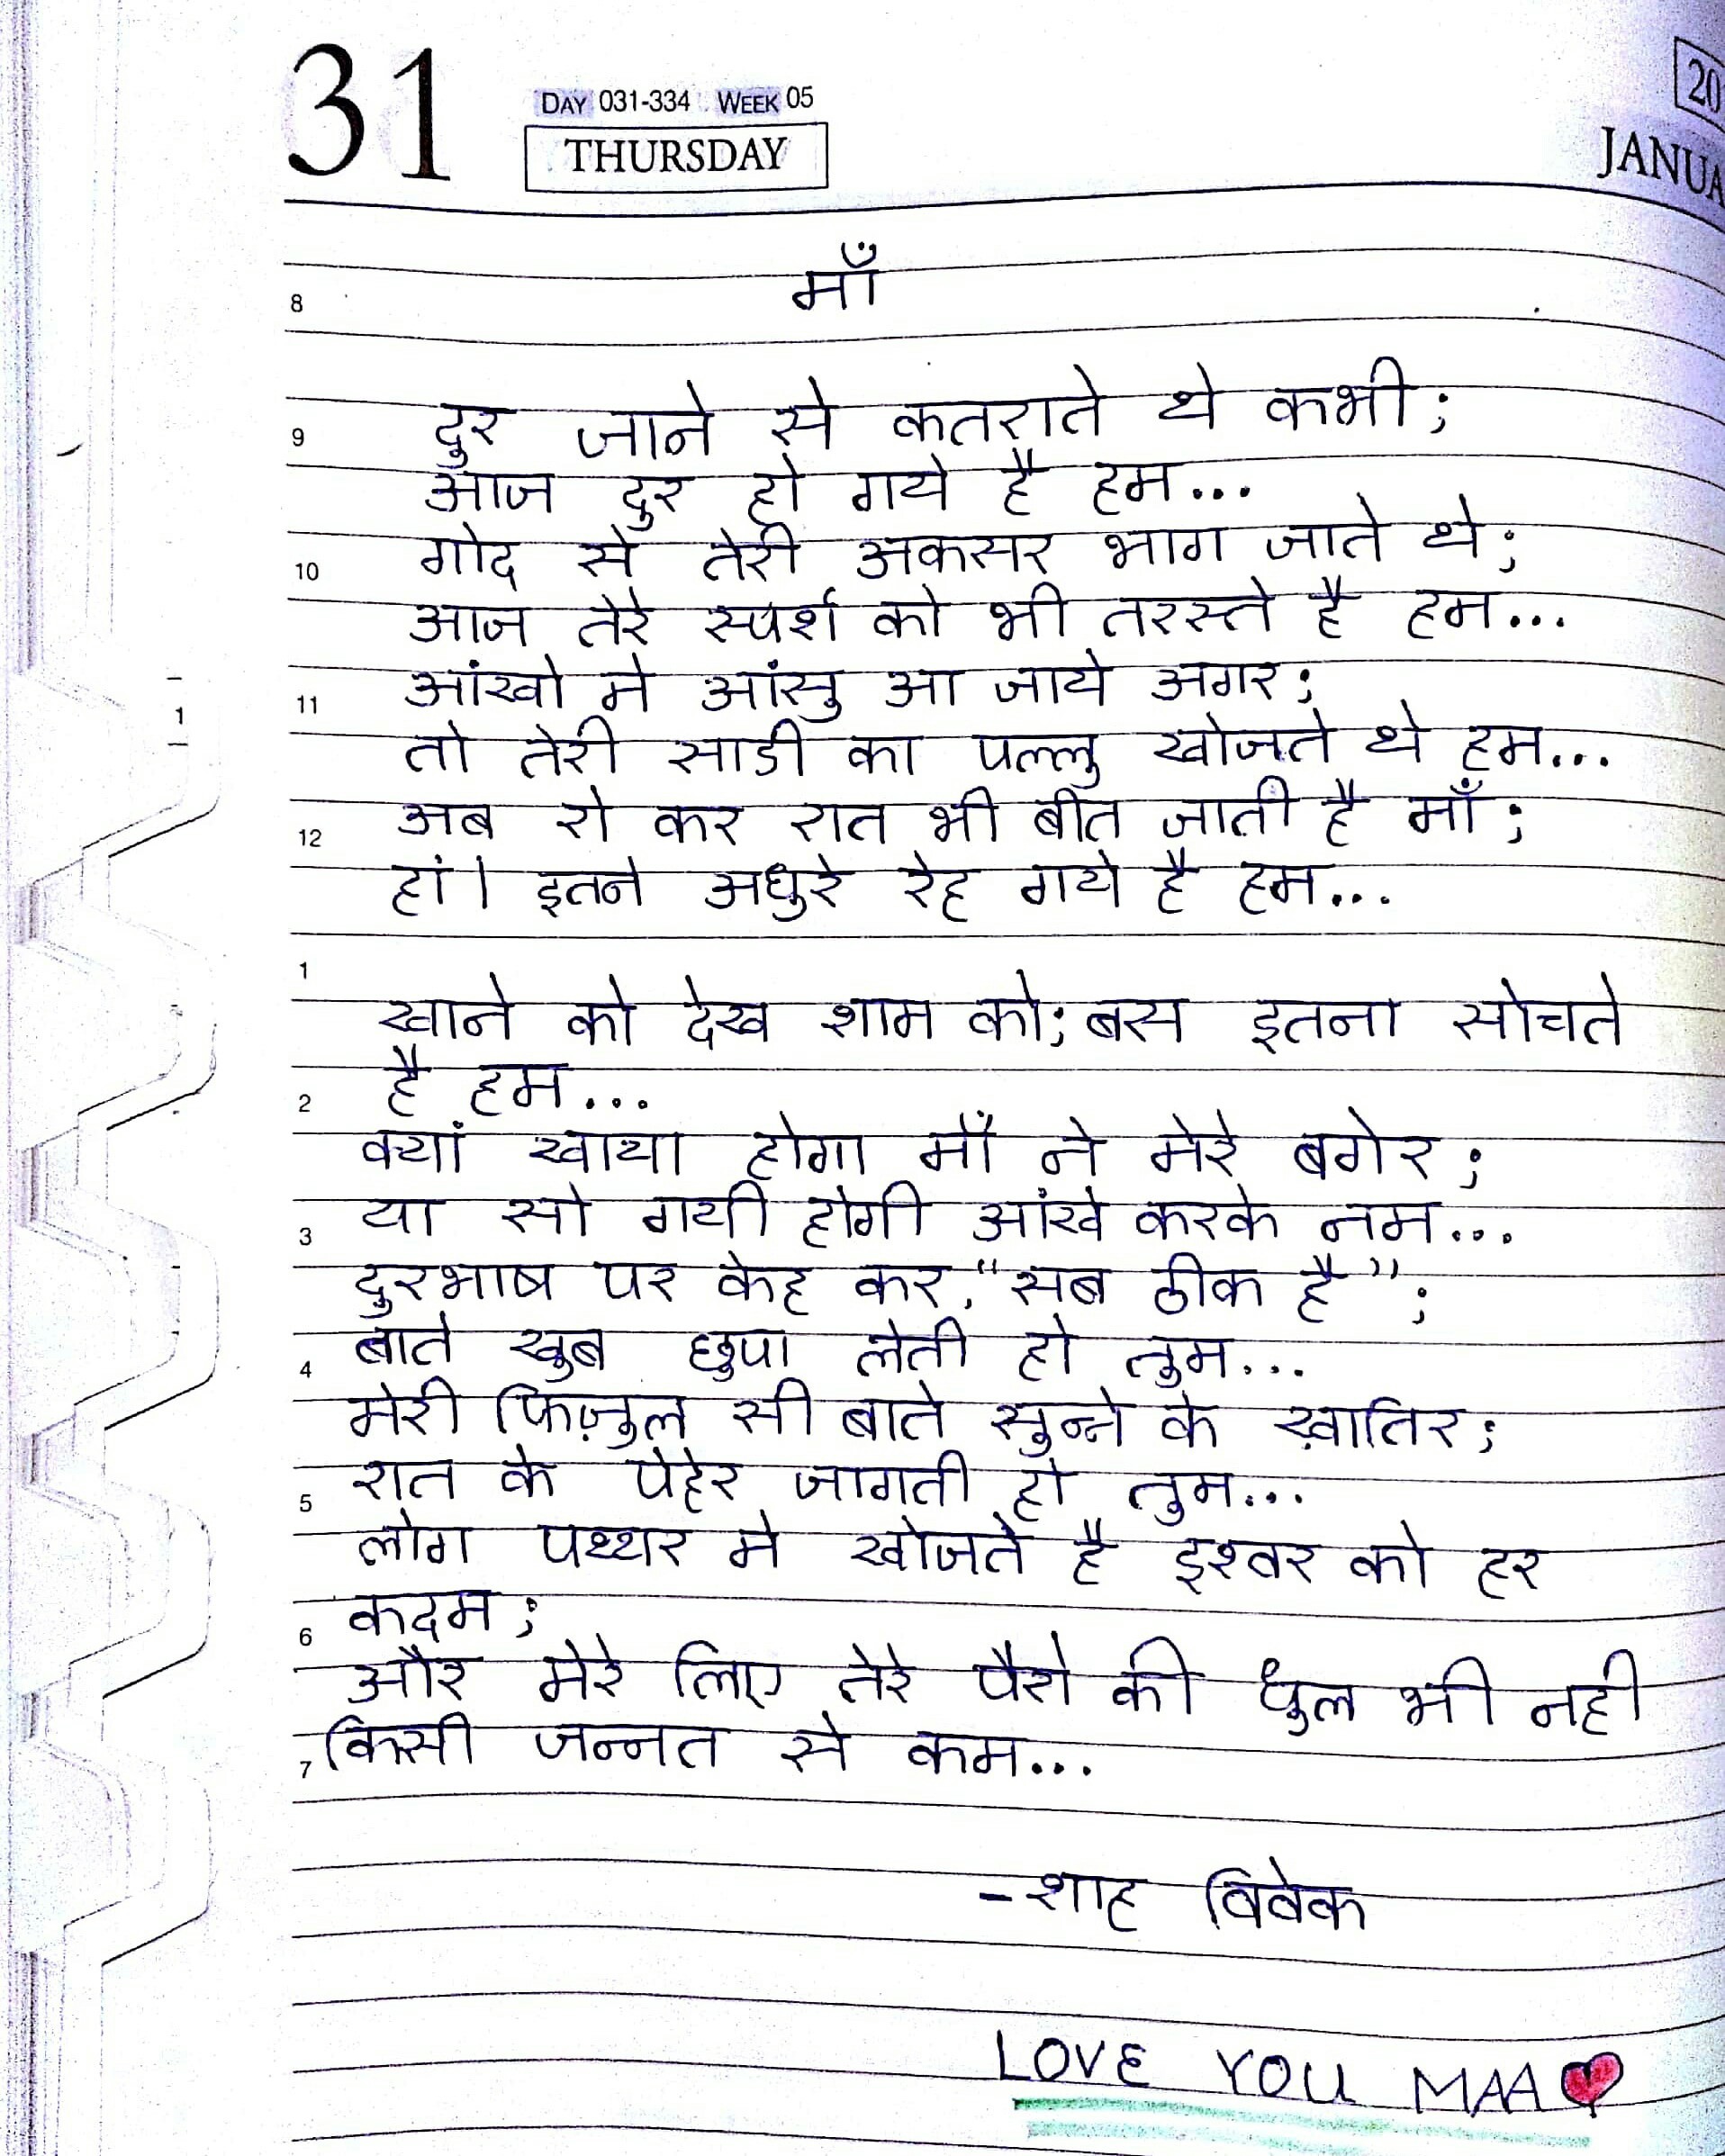 31
DAY 031-334 WEEK 05
THURSDAY
20
JANUA
माँ
8
9 दुर जाने से कतराते थे कभी;
आज दुर हो गये है हम...
10 गोद से तेरी अकसर भाग जाते थे;
आज तेरे स्पर्श को भी तरस्ते है हम...
11 आंखो मे आंसु आ जाये अगर;
तो तेरी साडी का पल्लु खोजते थे हम...
12 अब रो कर रात भी बीत जाती है माँ;
हां। इतने अधुरे रेह गये है हम...
1
खाने को देख शाम को; बस इतना सोचते
2 है हम...
क्यां खाया होगा माँ ने मेरे बगेर;
3 या सो गयी होगी आंखे करके नम...
दुरभाष पर केह कर, "सब ठीक है";
4 बाते खुब छुपा लेती हो तुम...
मेरी फिज़ुल सी बाते सुन्ने के ख़ातिर;
5 रात के पेहेर जागती हो तुम...
लोग पथ्थर मे खोजते है इश्वर को हर
6 कदम;
और मेरे लिए तेरे पैरो की धुल भी नही
7 किसी जन्नत से कम...
- शाह विवेक
LOVE YOU MAA
1